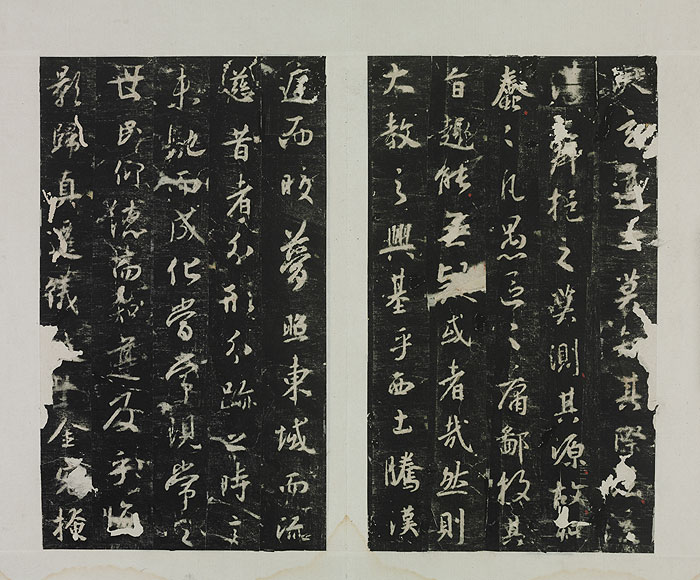 凝玄遵之莫知其際法流
湛寂挹之莫測其源故知
蠢〻凡愚區〻庸鄙投其
旨趣能無疑惑者哉然則
大教之興基乎西土騰漢
庭而皎夢照東域而流
慈昔者分形分跡之時言
未馳而成化當常現常之
世民仰德而知遵及乎晦
影歸真遷儀世金容掩